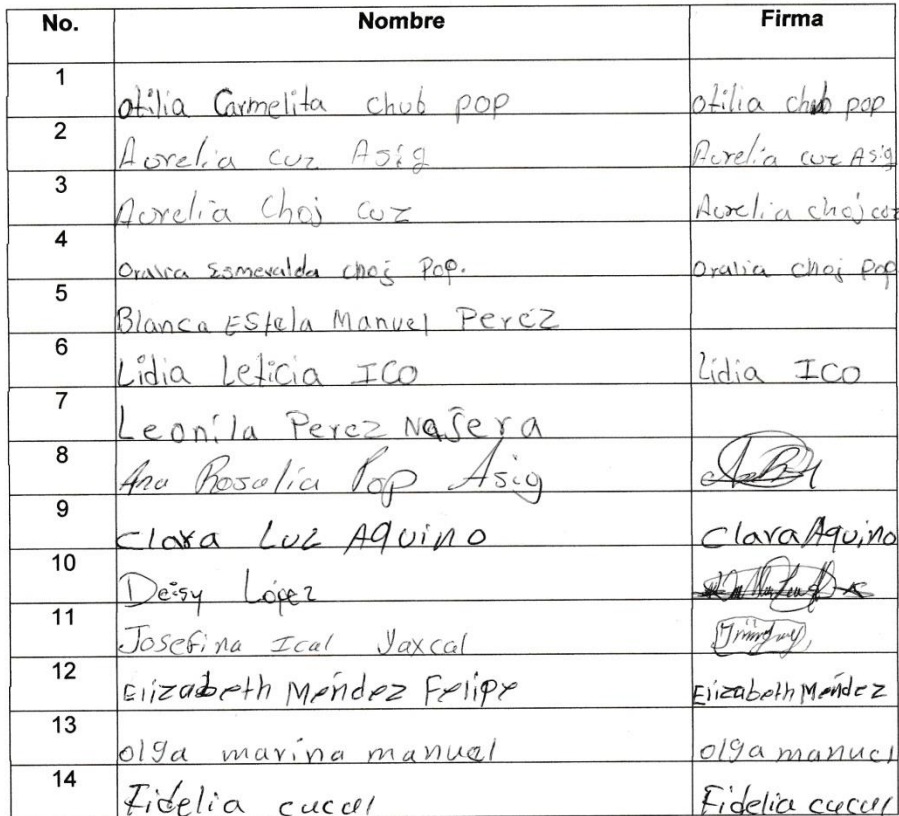 No. Nombre Firma
1 otilia Carmelita chub pop otilia chub pop
2 Aurelia cuz Asig Aurelia cuz Asig
3 Aurelia Choj cuz Aurelia choj cuz
4 Oralia Esmeralda choj Pop. Oralia choj pop
5 Blanca EStela Manuel Perez
6 Lidia Leticia ICO Lidia ICO
7 Leonila Perez Najera
8 Ana Rosalia Pop Asig
9 Clara Luz Aquino Clara Aquino
10 Deisy López
11 Josefina Ical Yaxcal
12 Elizabeth Méndez Felipe Elizabeth Méndez
13 olga marina manuel olga manuel
14 Fidelia cucul Fidelia cucul